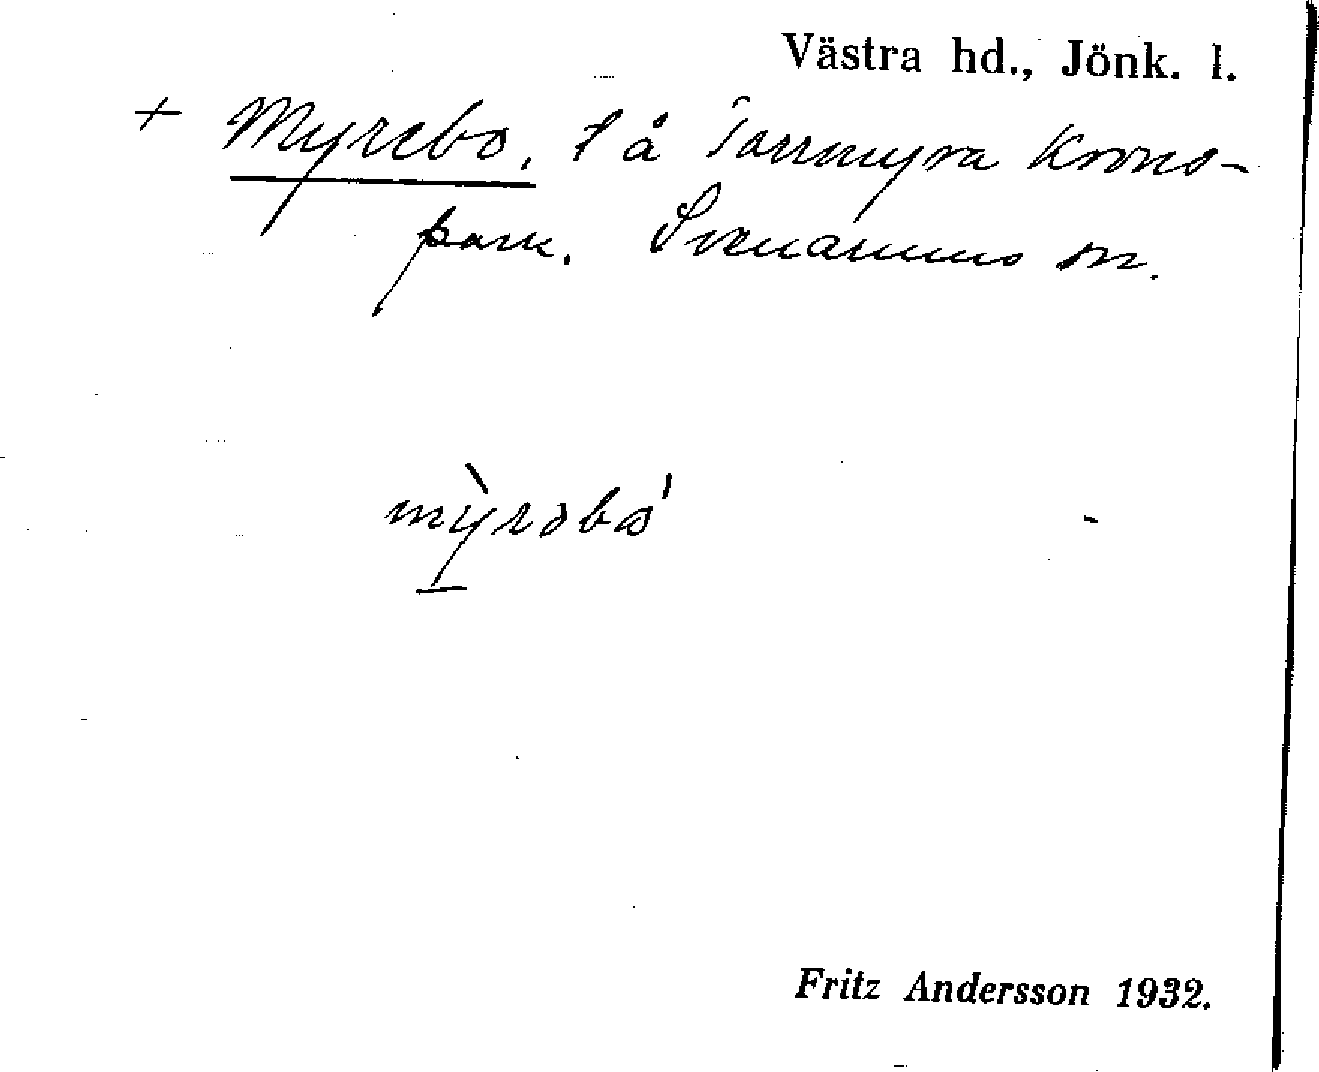 Västra hd., Jönk. l.
+ Myrebo, t å Torrmyra Krono-
park. Svenarums sn.
mỳrəbo'
Fritz Andersson 1932.